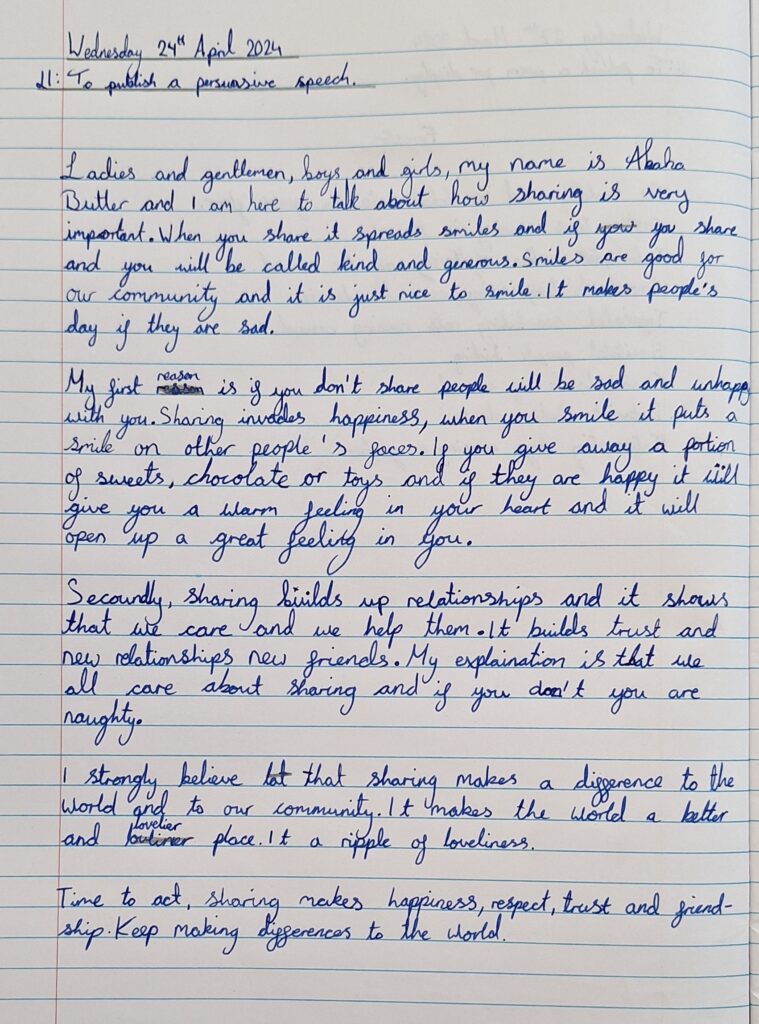 Wednesday 24th April 2024
LI: To publish a persuasive speech.
Ladies and gentlemen, boys and girls, my name is Abaha
Butler and I am here to talk about how sharing is very
important. When you share it spreads smiles and if you share
and you will be called kind and generous. Smiles are good for
our community and it is just nice to smile. It makes people's
day if they are sad.
My first reason is if you don't share people will be sad and unhappy
with you. Sharing invades happiness, when you smile it puts a
smile on other people's faces. If you give away a portion
of sweets, chocolate or toys and if they are happy it will
give you a warm feeling in your heart and it will
open up a great feeling in you.
Secoundly, sharing builds up relationships and it shows
that we care and we help them. It builds trust and
new relationships new friends. My explaination is that we
all care about sharing and if you don't you are
naughty.
I strongly believe that sharing makes a difference to the
world and to our community. It makes the world a better
and lovelier place. It a ripple of loveliness.
Time to act, sharing makes happiness, respect, trust and friend-
ship. Keep making differences to the world.